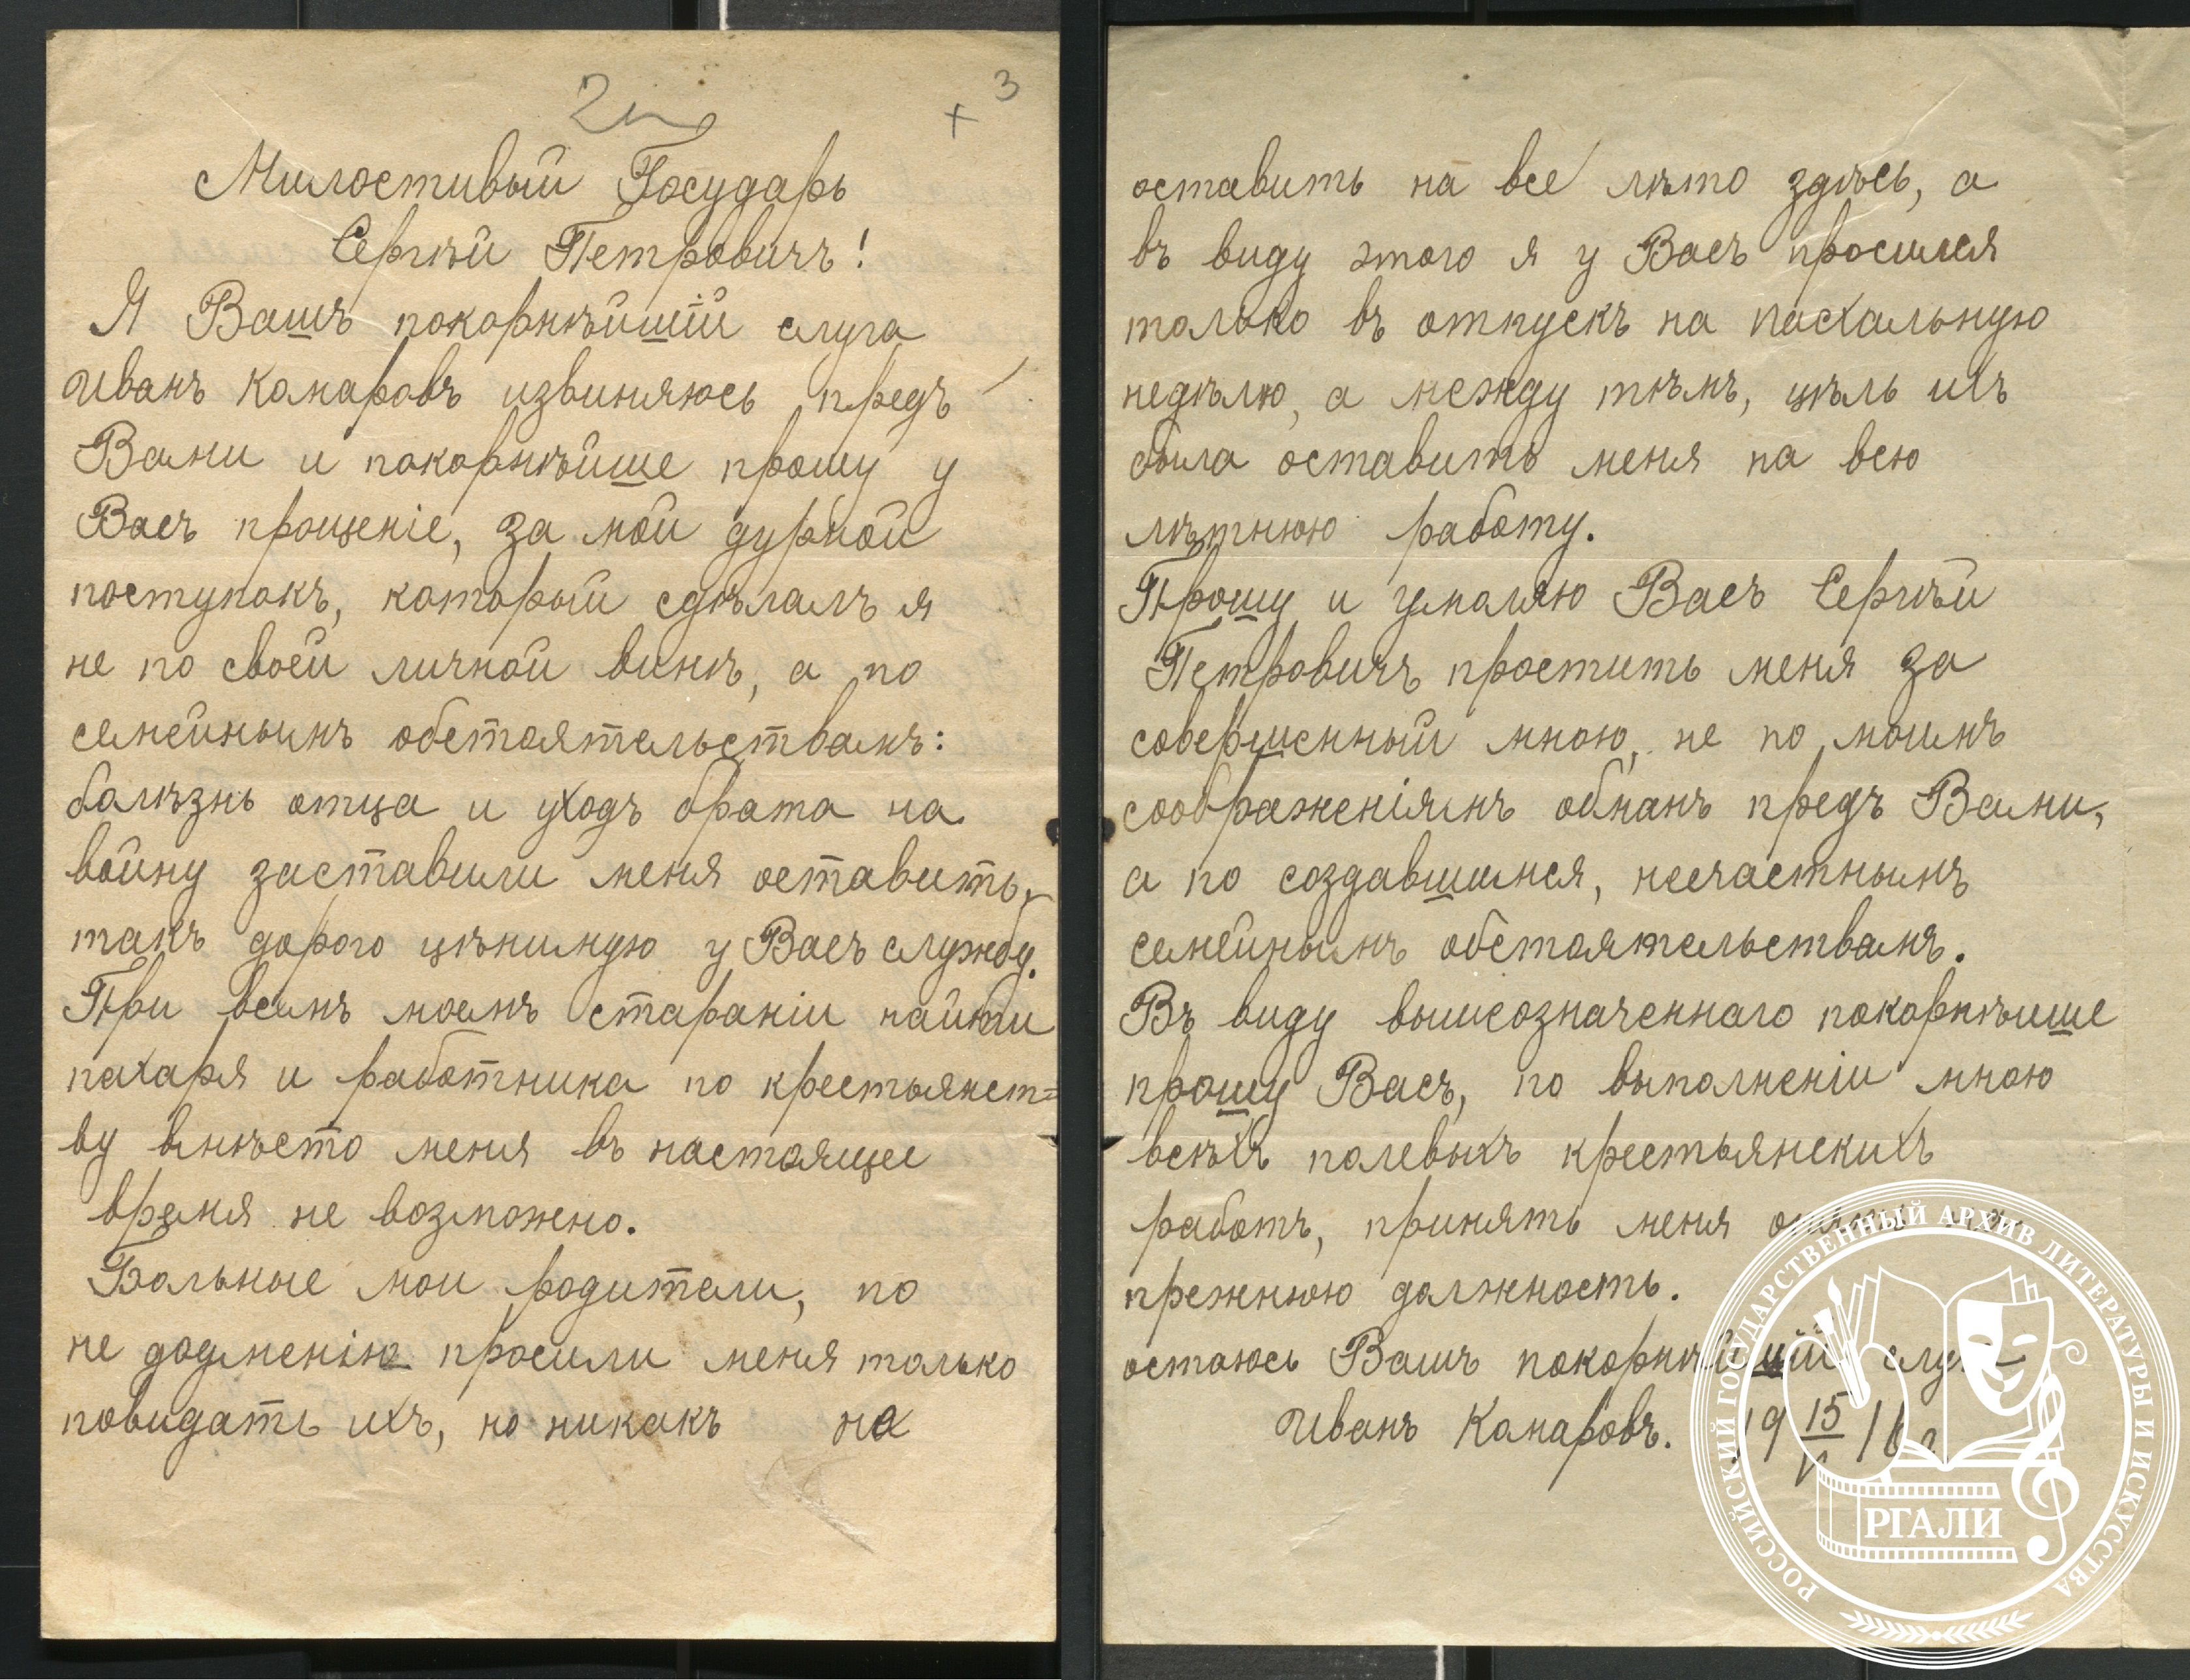 3
+
Милостивый Государь
Сергѣй Петровичъ!
Я Вашъ покорнѣйшій слуга
Иванъ Комаровъ извиняюсь предъ
Вами и покорнѣйше прошу у
Васъ прощеніе, за мой дурной
поступокъ, который сдѣлалъ я
не по своей личной винѣ, а по
семейнымъ обстоятельствамъ:
болѣзнь отца и уходъ брата на
войну заставили меня оставить,
такъ дорого цѣнимую у Васъ службу.
При всемъ моемъ стараніи найти
пахаря и работника по крестьянст=
ву вмѣсто меня въ настоящее
время не возможно.
Больные мои родители, по
не доумению просили меня только
повидать ихъ, но никакъ на
оставить на все лѣто здѣсь, а
въ виду этого я у Васъ просился
только въ отпускъ на пасхальную
недѣлю, а между тѣмъ, цѣль ихъ
была оставить меня на всю
лѣтнюю работу.
Прошу и умоляю Васъ Сергѣй
Петровичъ простить меня за
совершенный мною, не по моимъ
соображеніямъ обманъ предъ Вами,
а по создавшимся, несчастнымъ
семейнымъ обстоятельствамъ.
Въ виду вышеозначеннаго покорнѣише
прошу Васъ, по выполненіи мною
всѣхъ полевыхъ крестьянскихъ
работъ, принять меня
прежнюю должность.
остаюсь Вашъ покорнѣйшій слуга
Иванъ Комаровъ. 19 15/V 16 г
РОССИЙСКИЙ ГОСУДАРСТВЕННЫЙ АРХИВ ЛИТЕРАТУРЫ И ИСКУССТВА
РГАЛИ